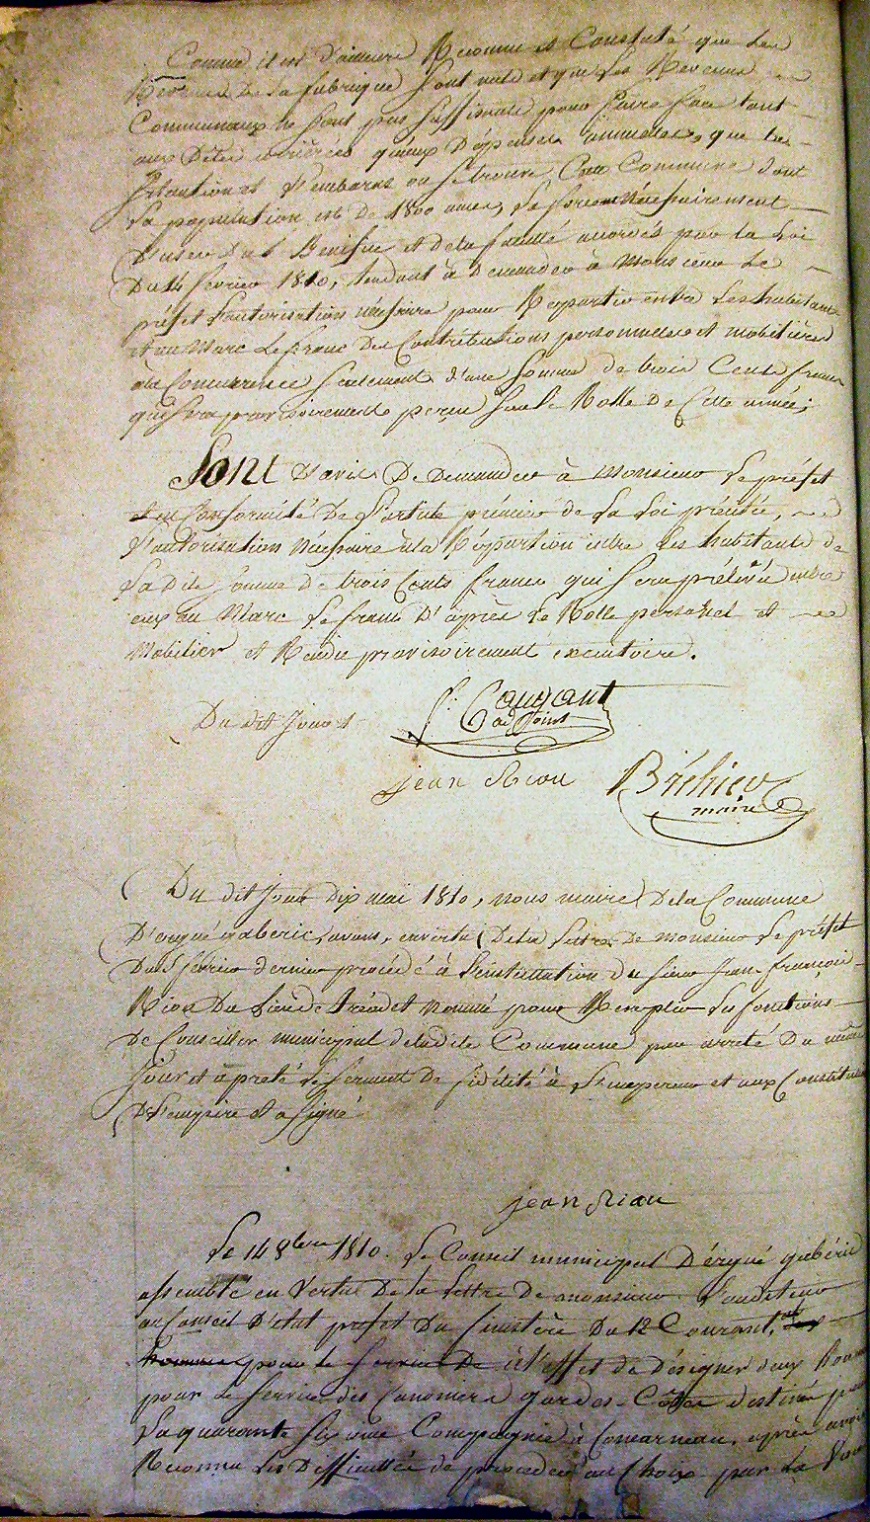 Comme il est d'ailleurs Reconnu et Constaté que les
Revenus de la fabrique sont nuls et que les Revenus
Communaux ne sont pas suffisants pour faire face tant
aux Dettes arriérées qu'aux Dépenses annuelles, que la
situation et l'embaras ou se trouve Cette Commune dont
la population est de 1800 ames, la force nécessairement
D'user du Bénéfice et de la faculté accordés par la Loi
Du 14 fevrier 1810, tendant à Demander à Monsieur Le
préfet l'autorisation nécessaire pour Répartir entre les habitans
et au Marc Le franc Des Contributions personnelles et mobilières
à la Concurrence seulement d'une Somme de trois Cents francs
qui sera provisoirement perçu sur le Rolle de Cette année;
Sont d'avis De Demander à Monsieur Le préfet
et en Conformité De L'article prémier de La Loi précitée,
l'autorisation nécessaire à la Répartion entre les habitants de
La Dite somme de trois Cents francs qui sera prélevé entre
eux au Marc Le franc D'après Le Rolle personel et
Mobilier et Rendu provisoirement executoire.
Du dit Jour
adjoint
jean Riou
Bréhier
maire
Du dit Jour Dix mai 1810, nous maire De la Commune
D'ergué gaberic, avons, en vertu De la Lettre De Monsieur Le préfet
Du février dernier procédé à l'installation du sieur Jean françois
Riou Du Lieu de tréodet Nommé pour Remplir Les fonctions
De Conseiller municipal de ladite Commune par arrêté Du même
Jour et a prêté le serment De fidélité à L'empereur et aux Constitutions
De l'empire et a signé
jean Riou
Le 14 8bre 1810. Le Conseil municipal D'ergué gabéric
assemblé en Vertu De la Lettre De monsieur L'auditeur
au Conseil D'etat prefet Du finistère Du 12 Courant,
homme pour le Service De à l'effet de Désigner deux hommes
pour Le Service des Canoniers gardes-Côtes destinés pour
La quarante sixieme Compagnie à Concarneau, après avoir
Reconnu Les Difficultés de proceder au Choix par La Voie